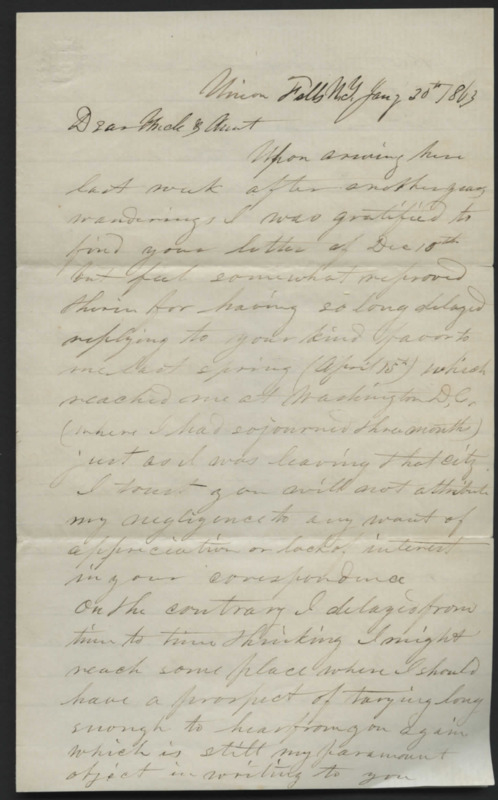 Union Falls N.Y. Jany 20th 1863
Dear Uncle & Aunt
Upon ariving here
last week after another years
wanderings I was gratified to
find your letter of Dec 10th
but feel somewhat reproved
therin for having so long delayed
replying to your kind favor to
me last spring (April 15th) which
reached me at Washington D.C.
(where I had sojourned three months)
just as I was leaving that city
I trust you will not attribute
my negligence to any want of
appreciation or lack of interest
in your corespondence
On the contrary I delayed from
time to time thinking I might
reach some place where I should
have a prospect of tarying long
enough to hear from you again
which is still my paramount
object in writing to you